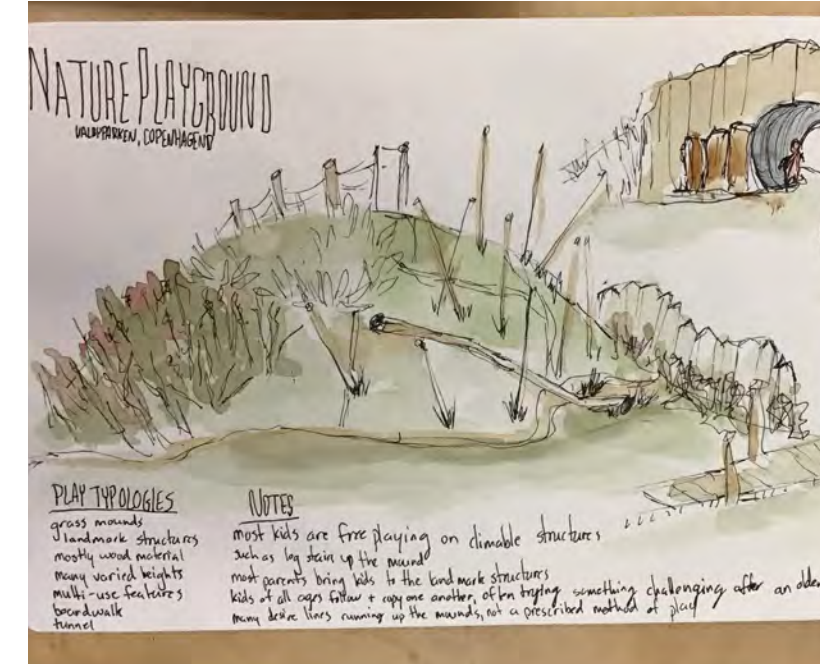 NATURE PLAYGROUND
VALBYPARKEN, COPENHAGEN
PLAY TYPOLOGIES
grass mounds
landmark structures
mostly wood material
many varied heights
multi-use features
boardwalk
tunnel
NOTES
most kids are free playing on climable structures
such as log stair up the mound
most parents bring kids to the landmark structures
kids of all ages follow + copy one another, often trying something challenging after an older
many desire lines running up the mounds, not a prescribed method of play